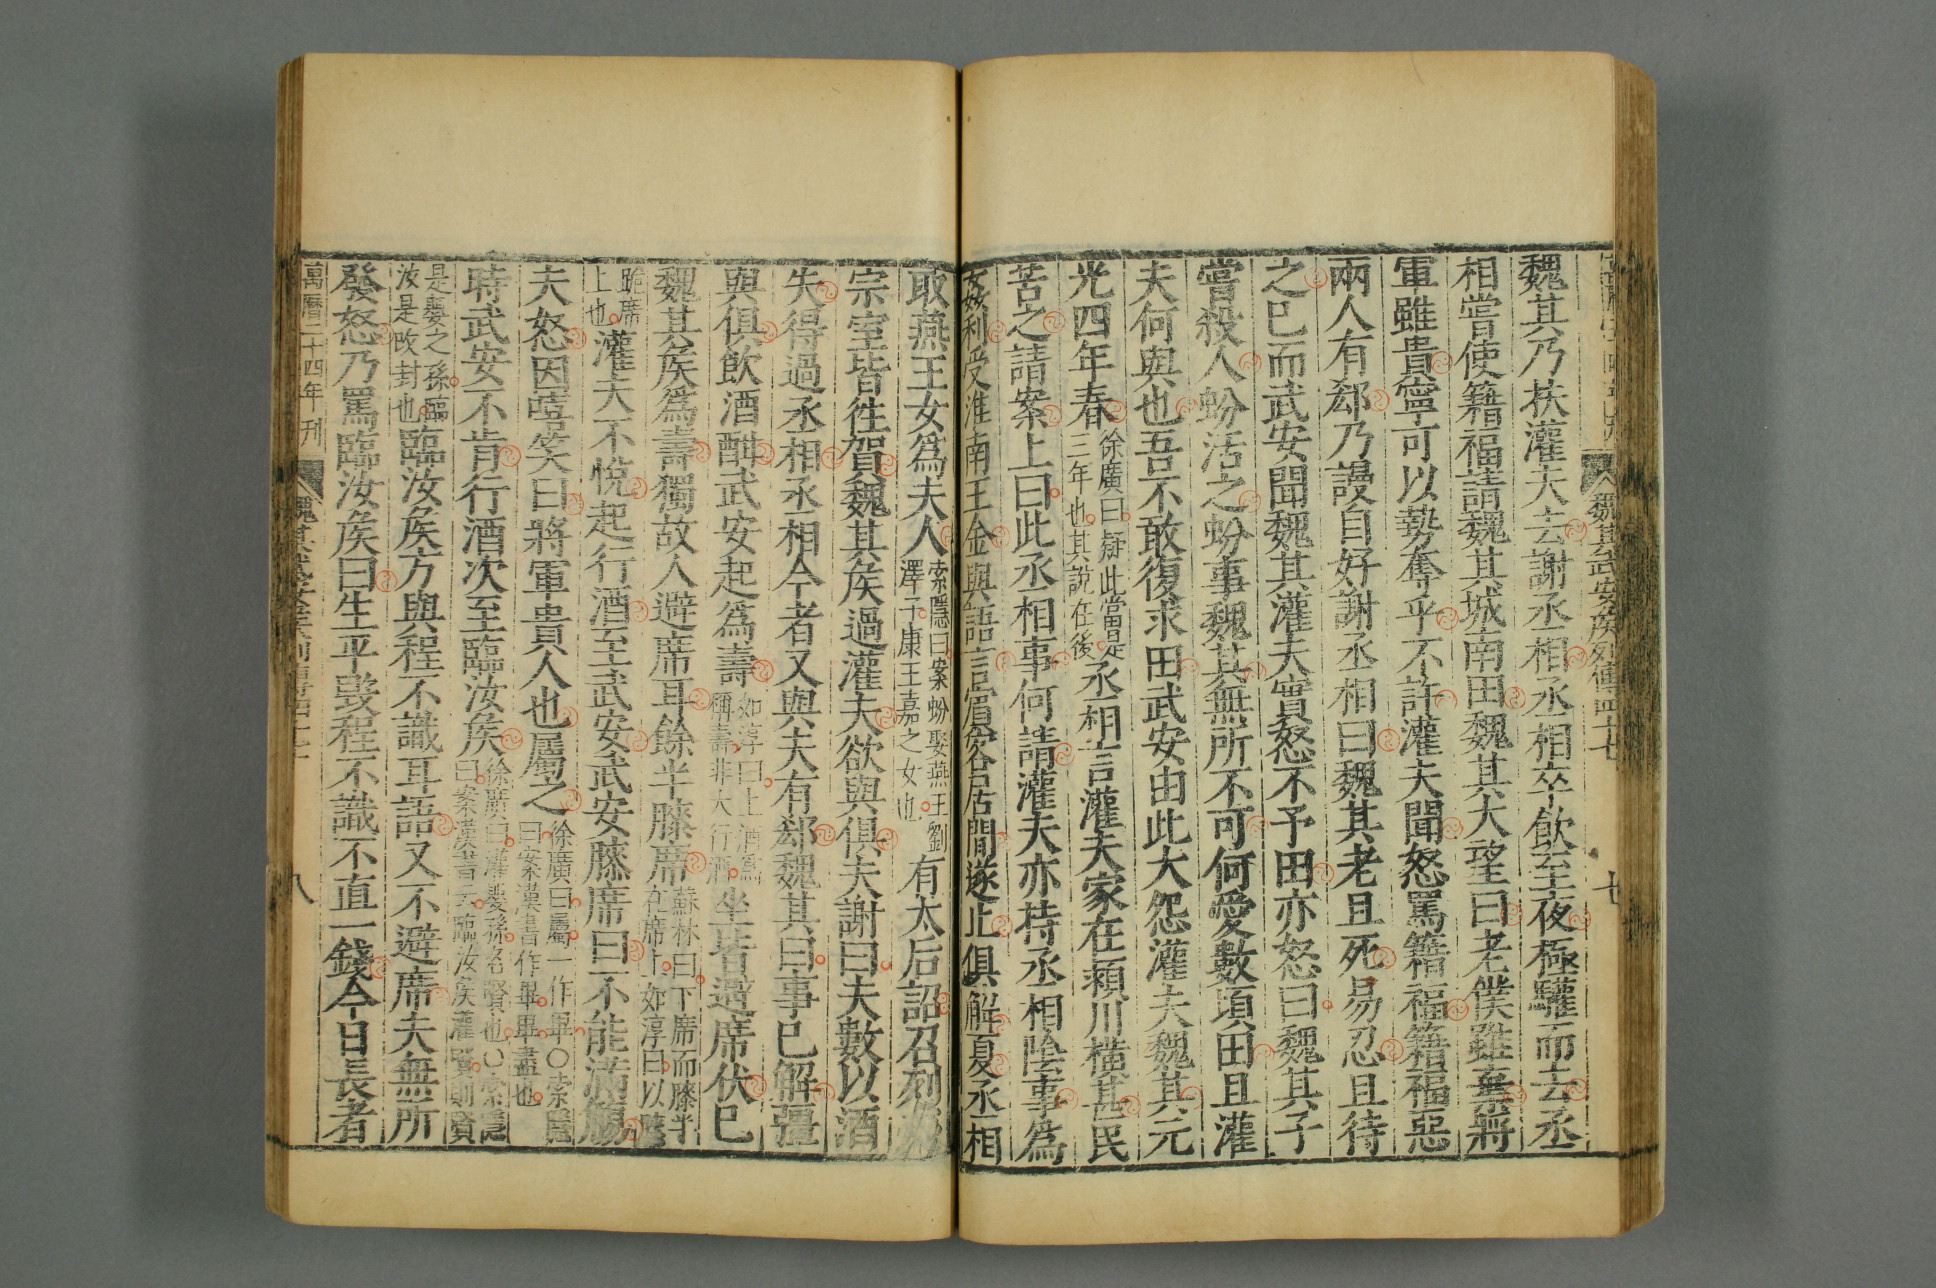 魏其武安矦列傳四十七
七
魏其乃扶灌夫去謝丞相丞相卒飲至夜極驩而去丞
相嘗使籍福請魏其城南田魏其大望曰老僕雖棄將
軍雖貴寧可以勢奪乎不許灌夫聞怒罵籍福籍福惡
兩人有郄乃謾自好謝丞相曰魏其老且死易忍且待
之已而武安聞魏其灌夫實怒不予田亦怒曰魏其子
嘗殺人蚡活之蚡事魏其無所不可何愛數頃田且灌
夫何與也吾不敢復求田武安由此大怨灌夫魏其元
光四年春徐廣曰疑此當是三年也其說在後丞相言灌夫家在穎川橫甚民
苦之請案上曰此丞相事何請灌夫亦持丞相陰事爲
姦利受淮南王金與語言賓客居間遂止俱解夏丞相
取燕王女爲夫人索隱曰案蚡娶燕王劉澤子康王嘉之女也有太后詔召列矦
宗室皆徃賀魏其矦過灌夫欲與俱夫謝曰夫數以酒
失得過丞相丞相今者又與夫有郄魏其曰事已解彊
與俱飲酒酣武安起爲壽如淳曰上酒爲稱壽非大行酒坐皆避席伏已
魏其矦爲壽獨故人避席耳餘半膝席蘇林曰下席而膝半在席上如淳曰以膝
跪席上也灌夫不悅起行酒至武安武安膝席曰不能滿觴
夫怒因嘻笑曰將軍貴人也屬之徐廣曰屬一作畢○索隱曰案漢書作畢畢盡也
時武安不肯行酒次至臨汝矦徐廣曰灌嬰孫名賢也○索隱曰案漢書云臨汝矦灌賢則賢
是嬰之孫臨汝是改封也臨汝矦方與程不識耳語又不避席夫無所
發怒乃罵臨汝矦曰生平毀程不識不直一錢今日長者
萬曆二十四年刊
八